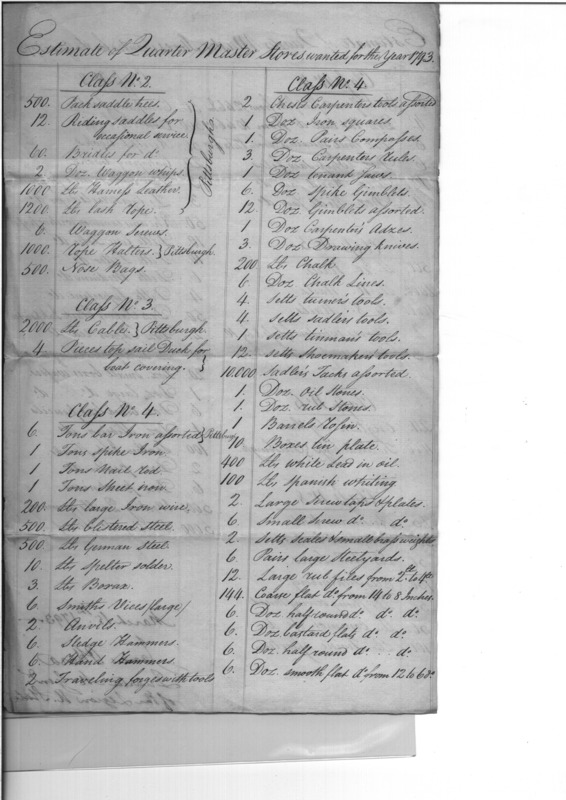 Estimate of Quarter Master Stores wanted for the Year 1793.
Class No. 2.
500. Pack saddle trees.
12. Riding saddles for
occasional service.
60. Bridles for do.
2. Doz. Waggon whips.
1000 Lbs Harness Leather.
1200. Lbs lash Rope.
Pittsburgh.
6. Waggon Screws.
1000. Rope Halters. } Pittsburgh.
500. Nose Bags.
Class No. 3
2000 Lbs Cable. } Pittsburgh.
4. Pieces top sail Duck for
boat covering.
Class No. 4.
6. Tons bar Iron assorted } Pittsburg
1 Tons spike Iron
1 Tons Nail rod
1 Tons Sheet iron
200. Lbs large Iron wire.
500. Lbs blistered Steel.
500. Lbs German Steel.
10. Lbs Spelter solder.
3. Lbs Borax.
6. Smiths Vices /large/
2. Anvils.
6. Sledge Hammers.
6. Hand Hammers.
2 Traveling forges with tools
Class No. 4.
2 Chests Carpenters tools assorted
1 Doz Iron squares.
1. Doz. Pairs Compasses.
3. Doz. Carpenters Rules.
1 Doz tenand saws.
6. Doz Spike Gimblets.
12. Doz Gimblets assorted.
1 Doz Carpenters Adzes.
3. Doz Drawing knives.
200 Lbs Chalk
6. Doz Chalk Lines.
4. setts turner's tools.
4. setts sadler's tools.
1. setts tinman's tools.
12. setts Shoemakers tools.
10.000 Sadler's Tacks assorted.
1. Doz. Oil Stones.
1. Doz. rub Stones.
1 Barrels Rosin.
10 Boxes tin plate.
400 Lbs white Lead in oil.
100 Lbs spanish whiting
2. Large screw taps & plates.
6. Small screw do. do.
2. Setts scales & small brass weights
6. Pairs large Steelyards.
12. Large rub files from
144. Coarse flat do from 14 to 8 Inches.
6. Doz half round do. do. do.
6. Doz bastard flats do. do.
6. Doz. half round do. do.
6. Doz. smooth flat do from 12 to 6 do.